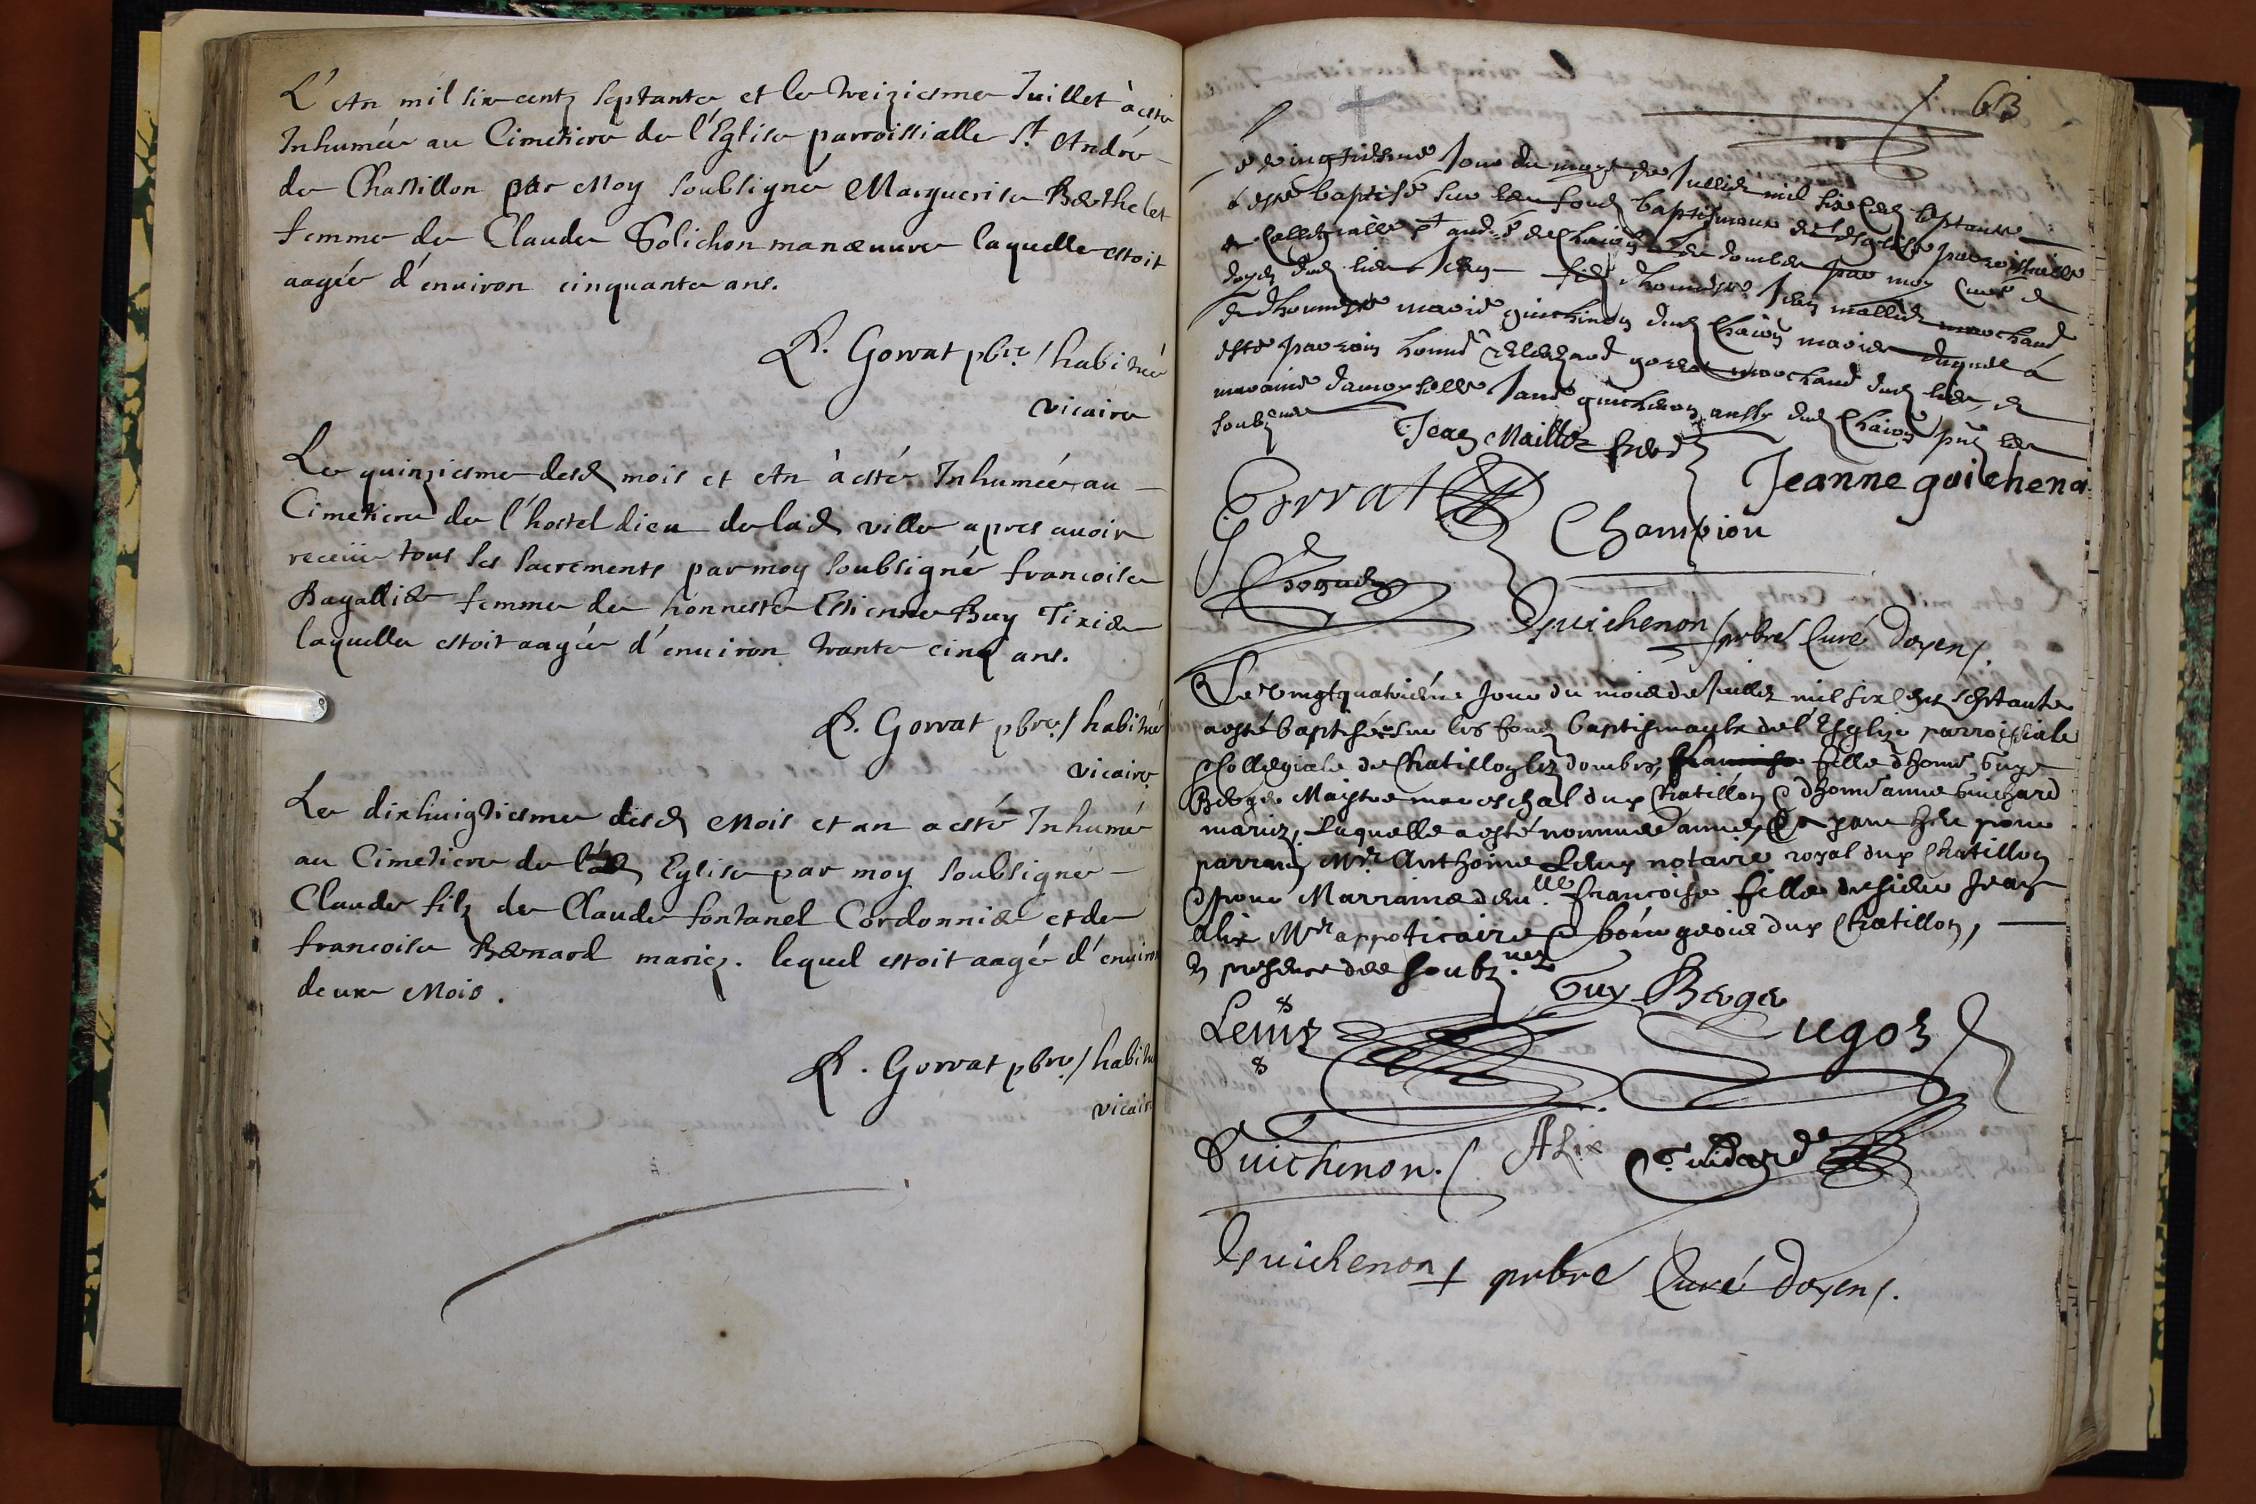 L'An mil six centz septante et le treiziesme Juillet à esté
Inhumée au Cimetiere de l'Eglise parroissialle St. André
de Chastillon par Moy soubsigné Marguerite Berthelet
femme de Claude Solichon manœuure laquelle estoit
aagée d'enuiron cinquante ans.
Gorrat pbre / habitué
vicaire
Le quinziesme desd mois et An à esté Inhumée au
Cimetiere de l'hostel dieu de lad ville apres auoir
receüe tous les sacrements par moy soubsigné francoise
Bagallier femme de honneste Estienne Buy Tixier
laquelle estoit aagée d'enuiron trante cinq ans.
Gorrat pbre / habitué
vicaire
Le dixhuigtiesme desd Mois et an a esté Inhumé
au Cimetiere de lad Eglise par moy soubsigné
Claude filz de Claude fontanel Cordonnier et de
francoise Bernard mariez. lequel estoit aagé d'enuiron
deux Mois.
Gorrat pbre / habitué
vicaire
63
vingtiesme Jour du moys de Juillet mil six cens septante
esté baptisé sur les fondz baptismaux de l'esglise parroissialle
Collegialle St andré de de dombes par moy Curé &
doyen dud lieu Jean filz d'honneste Jean mallier marchand
& d'honneste marie guichenon dud mariez duquel à
esté parrain gorrat marchand dud lieu &
marraine damoyselle Janne guichenon aussy dud
soubznez
Jean Maillier
Gorrat
Jeanne guichenon
Champion
Guichenon / prbre Curé doyen /
Le vingtquatrième Jour du mois de Juillet mil six cens septante
a esté baptisée sur les fons baptismaulx de l'Esglise parroissiale
Collegiale de Chatillon lez dombes, francoise fille d'hone Guye
Berger Maistre mareschal dud Chatillon & d'hone anne Guichard
mariez, Laquelle a esté nommée anne, & a pour parrain
parrain Mre Anthoine Leuis notaire royal dud Chatillon
& pour Marraine demlle francoise fille de sieur Jean
Alix Mre appoticaire & bourgeois dud Chatillon,
En presence des soubz.nez
Guy Berger
Leuis
ugoz
Guichenon. / Alix Guichard
Guichenon prbre Curé doyen /.